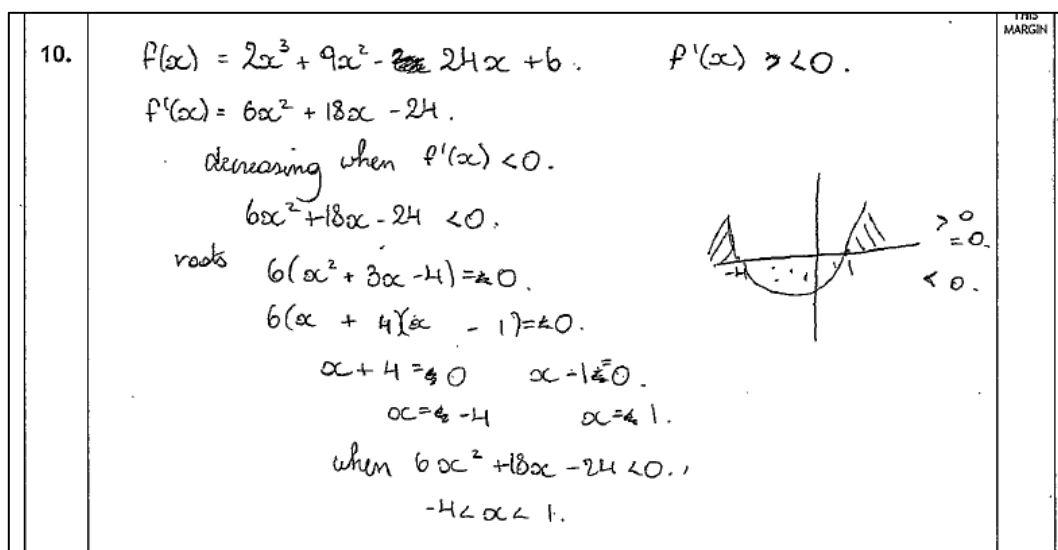 THIS MARGIN
10. f(x) = 2x³ + 9x² - 24x + 6. f'(x) < 0.
f'(x) = 6x² + 18x - 24.
decreasing when f'(x) < 0.
6x² + 18x - 24 < 0.
roots 6(x² + 3x - 4) = 0.
6(x + 4)(x - 1) = 0.
x + 4 = 0 x - 1 = 0.
x = -4 x = 1.
when 6x² + 18x - 24 < 0.,
-4 < x < 1.
> 0
= 0.
-4 1
< 0.